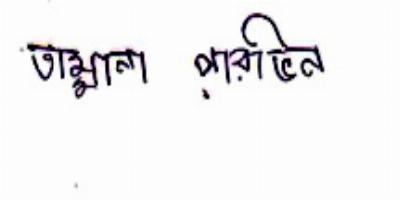 তামান্না পারভিন